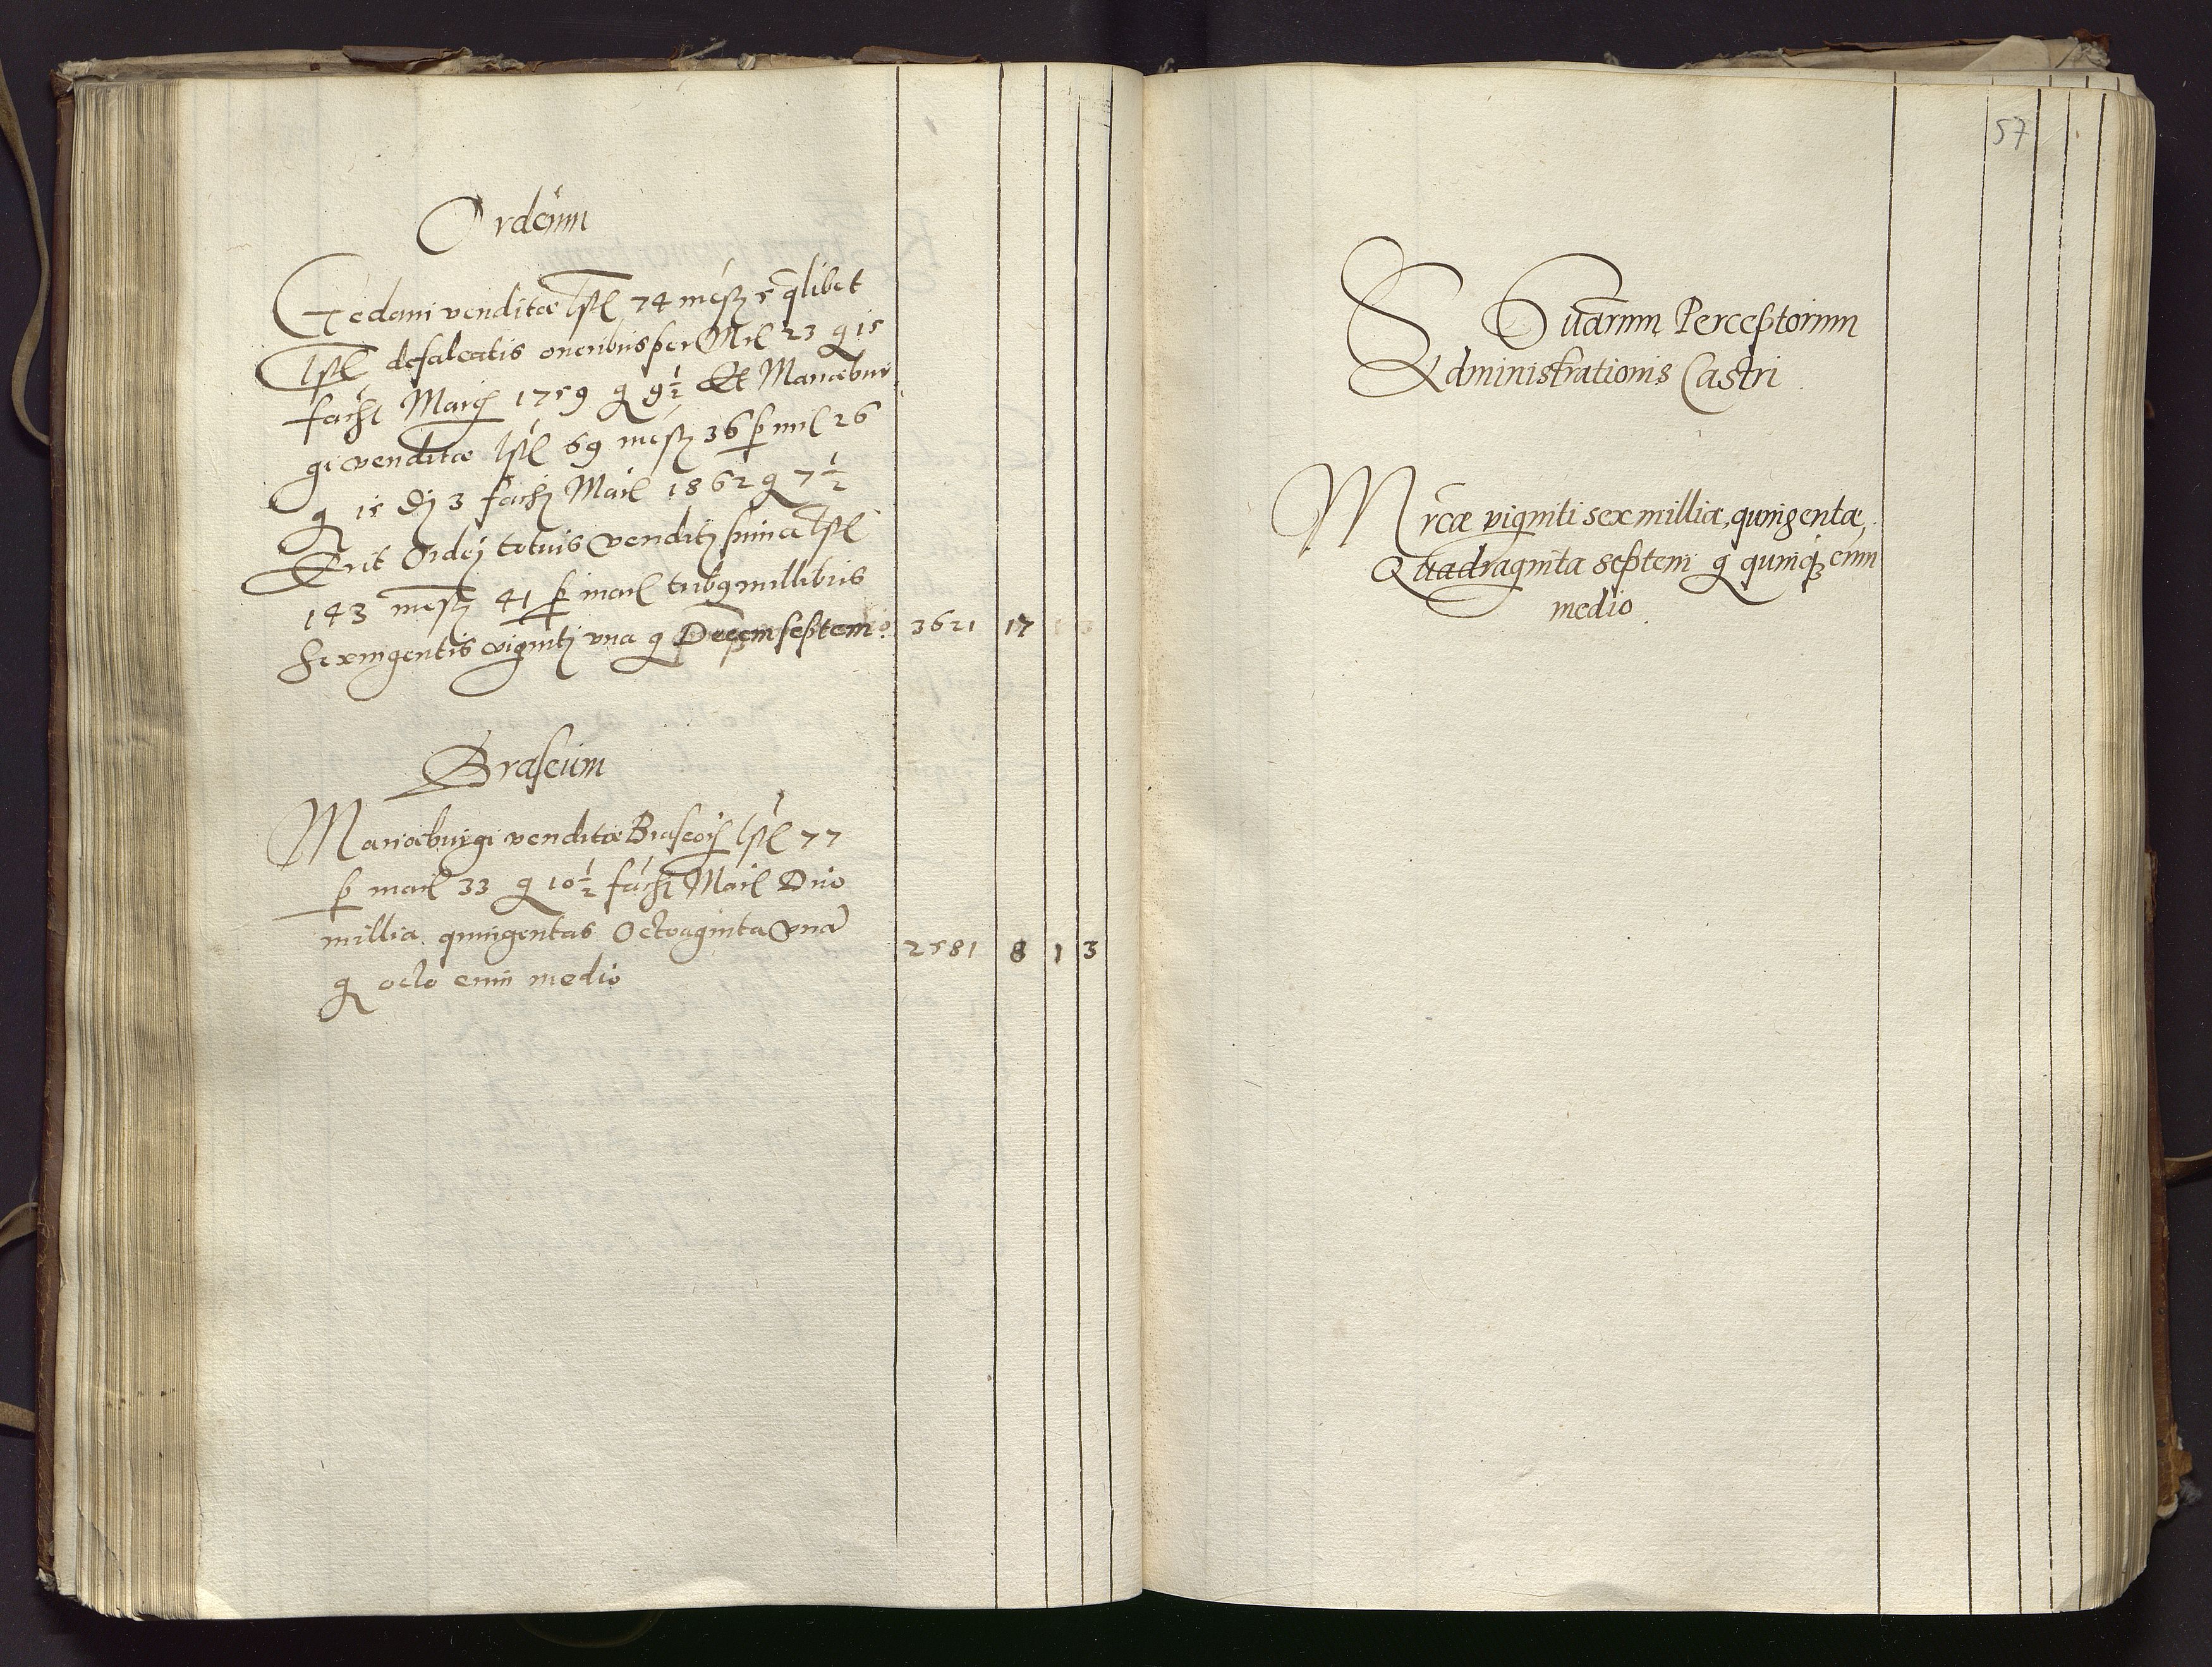 Ordeum
Gedani venditae lstl 74 mesz 5 qlibet
lstl defalcatis oneribus per Mrl 23 g 15
facht March 1759 g 9½ Et Mariaebur
gi venditae lstl 69 mesz 36 p mrl 26
g 15 3 fachs Marl 1862 g 7½
Erit Ordej totius venditj suma lstl
143 mesz 41 p marl tribq millibus
Sexingentis vigintj una g Decem septem 3621 17
Braseum
Mariaeburgi venditae Braseorz lstl 77
p marl 33 g 10½ facht Marl Duo
millia quingentas Octoaginta una
g octo cum medio 2581 8 1 3
57
Suarum Perceptorum
Administrationis Castri
Mrcae viginti sex millia, quingentae
Quadraginta septem g quinq cum
medio